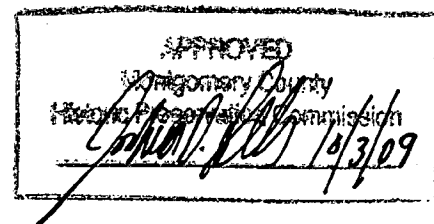 APPROVED
Montgomery County
Historic Preservation Commission
10/3/09